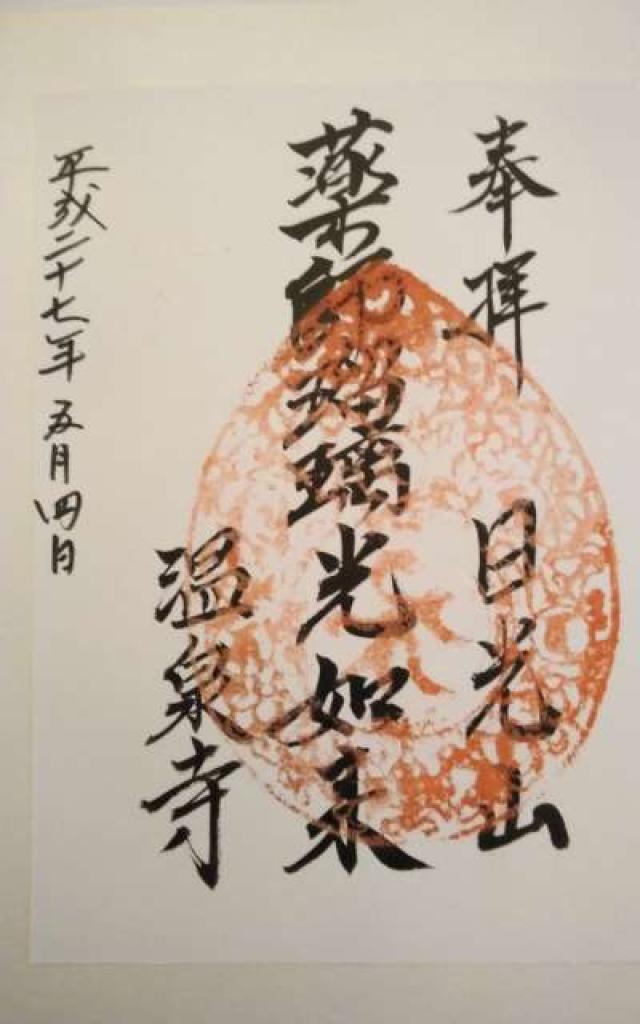 奉拝 日光山
薬師瑠璃光如来
温泉寺
平成二十七年五月四日